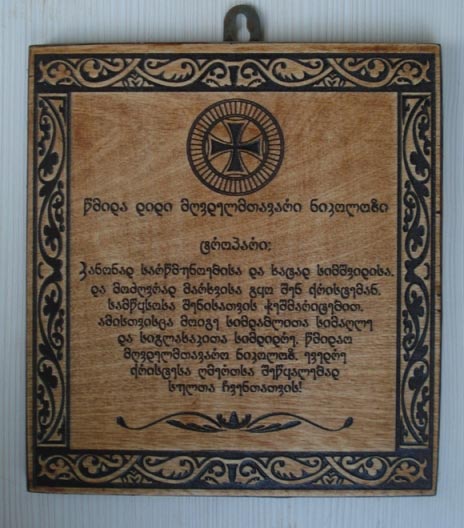 წმიდა დიდი მღვდელმთავარი ნიკოლოზი
ტროპარი;
კანონად სარწმუნოებისა და სახედ სიმშვიდისა,
და მოძღვრად მარხვისა გყო შენ ქრისტემან,
სამწყსოსა შენისათვის ჭეშმარიტებით.
ამისთვისცა მოიგე სიმდაბლითა სიმაღლე
და სიგლახაკითა სიმდიდრე. წმიდაო
მღვდელმთავარო ნიკოლოზ, ევედრე
ქრისტესა ღმერთსა შეწყალებად
სულთა ჩვენთათვის!